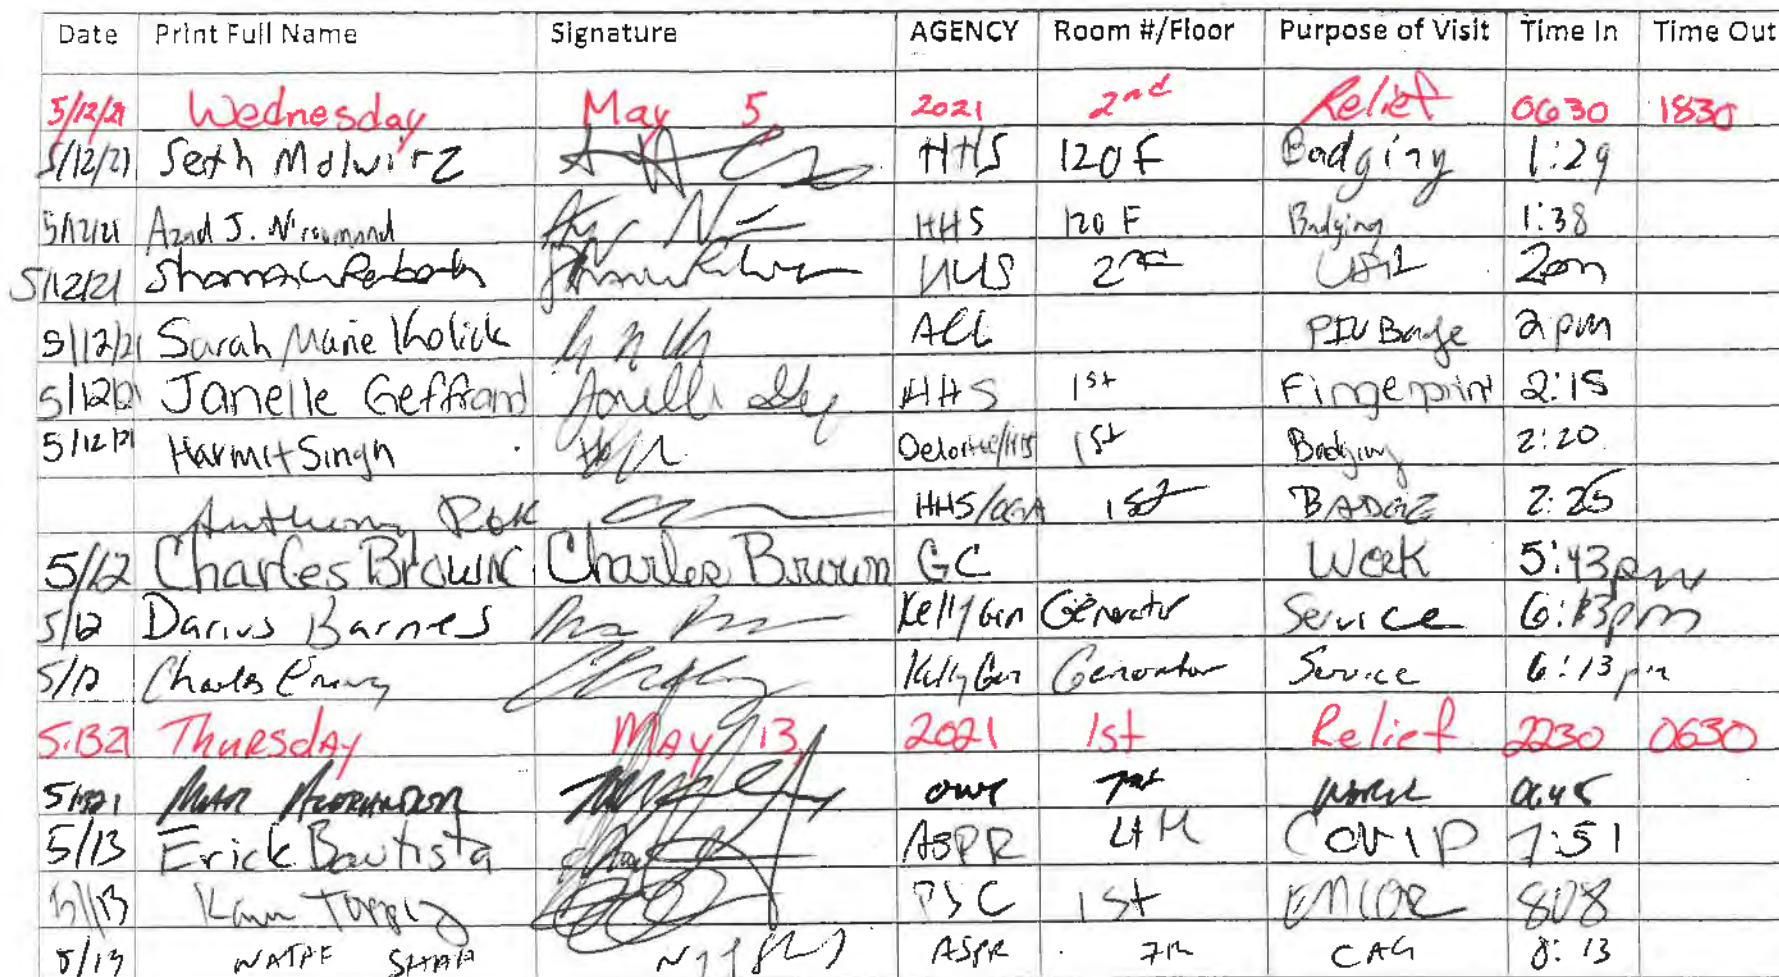 Date Print Full Name Signature AGENCY Room #/Floor Purpose of Visit Time In Time Out
5/12/21 Wednesday May 5, 2021 2nd Relief 0630 1830
5/12/21 Seth HHS 120 F Badging 1:29
5/12/21 Azad J. HHS 120 F Badging 1:38
5/12/21 HHS 2nd 2pm
5/12/21 Sarah Marie Kolick ACL PIV Badge 2pm
5/12/21 Janelle Geffrard HHS 1st Fingerprint 2:15
5/12/21 Harmit Singh Deloitte/HHS 1st Badging 2:20
Anthony Rok HHS/OGA 1st BADGE 2:25
5/12 Charles Brown Charles Brown GC Work 5:43pm
5/12 Darius Barnes Kelly Gen Generator Service 6:13pm
5/12 Charles Kelly Gen Generator Service 6:13pm
5.13.21 Thursday May 13, 2021 1st Relief 2230 0630
work 0645
5/13 Erick Bautista ASPR 4th COVID 7:51
5/13 PSC 1st 808
5/13 SHAH ASPR 7th CAG 8:13